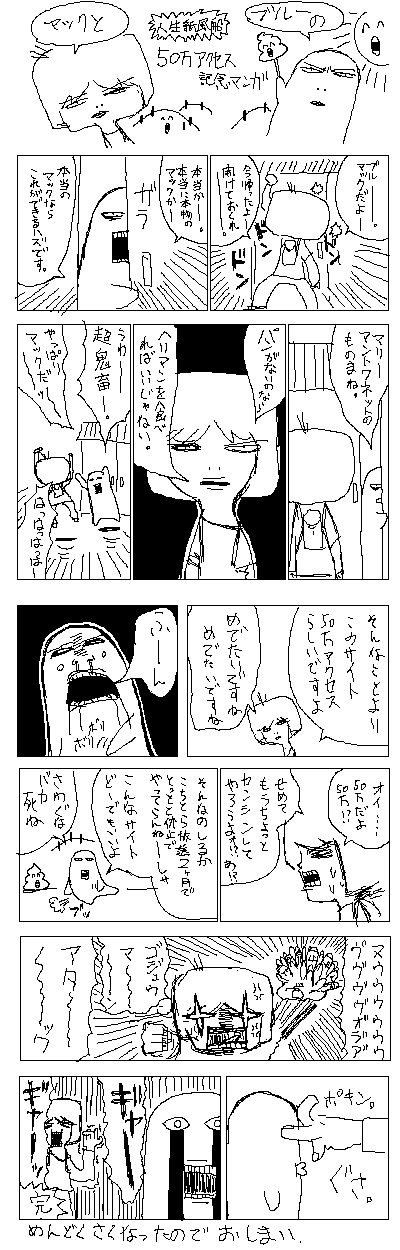 マックと
ブルレーの
人生紙風船
50万アクセス
記念マンガ
ブルー。
マックだよー
今帰ったよ
開けておくれ。
ドン
ドン
本当かー。
本当に本物の
マックか
ガラ
本当の
マックなら
これができるハズです。
マリー
アントワネットの
ものまね。
パンがないのなら
ハリマンを食べ
ればいいじゃない。
うわー
超鬼畜ー。
やっぱり
マックだッ
はっはっはっはー
そんなことより
このサイト
50万アクセス
らしいですよ
めでたいですね
めでたいですね
ふーん
ボリ
ボリ
オイ・・・
50万だよ
50万!?
せめて
もうちょっと
センションして
やろうよオ!?あ!?
そんなのしるか
こちとら依然2ヶ月で
とっとと休止で
やってらんねーしゃ
こんなサイト
どーでもいいよ
ブッ
さわぐな
バカ
死ね
ヌウウウウウウ
ヴヴヴヴオラア
ジュウ
マー
アター
ック
ポキン。
ぐさ。
ギャー
ギャー
完
めんどくさくなったので おしまい.